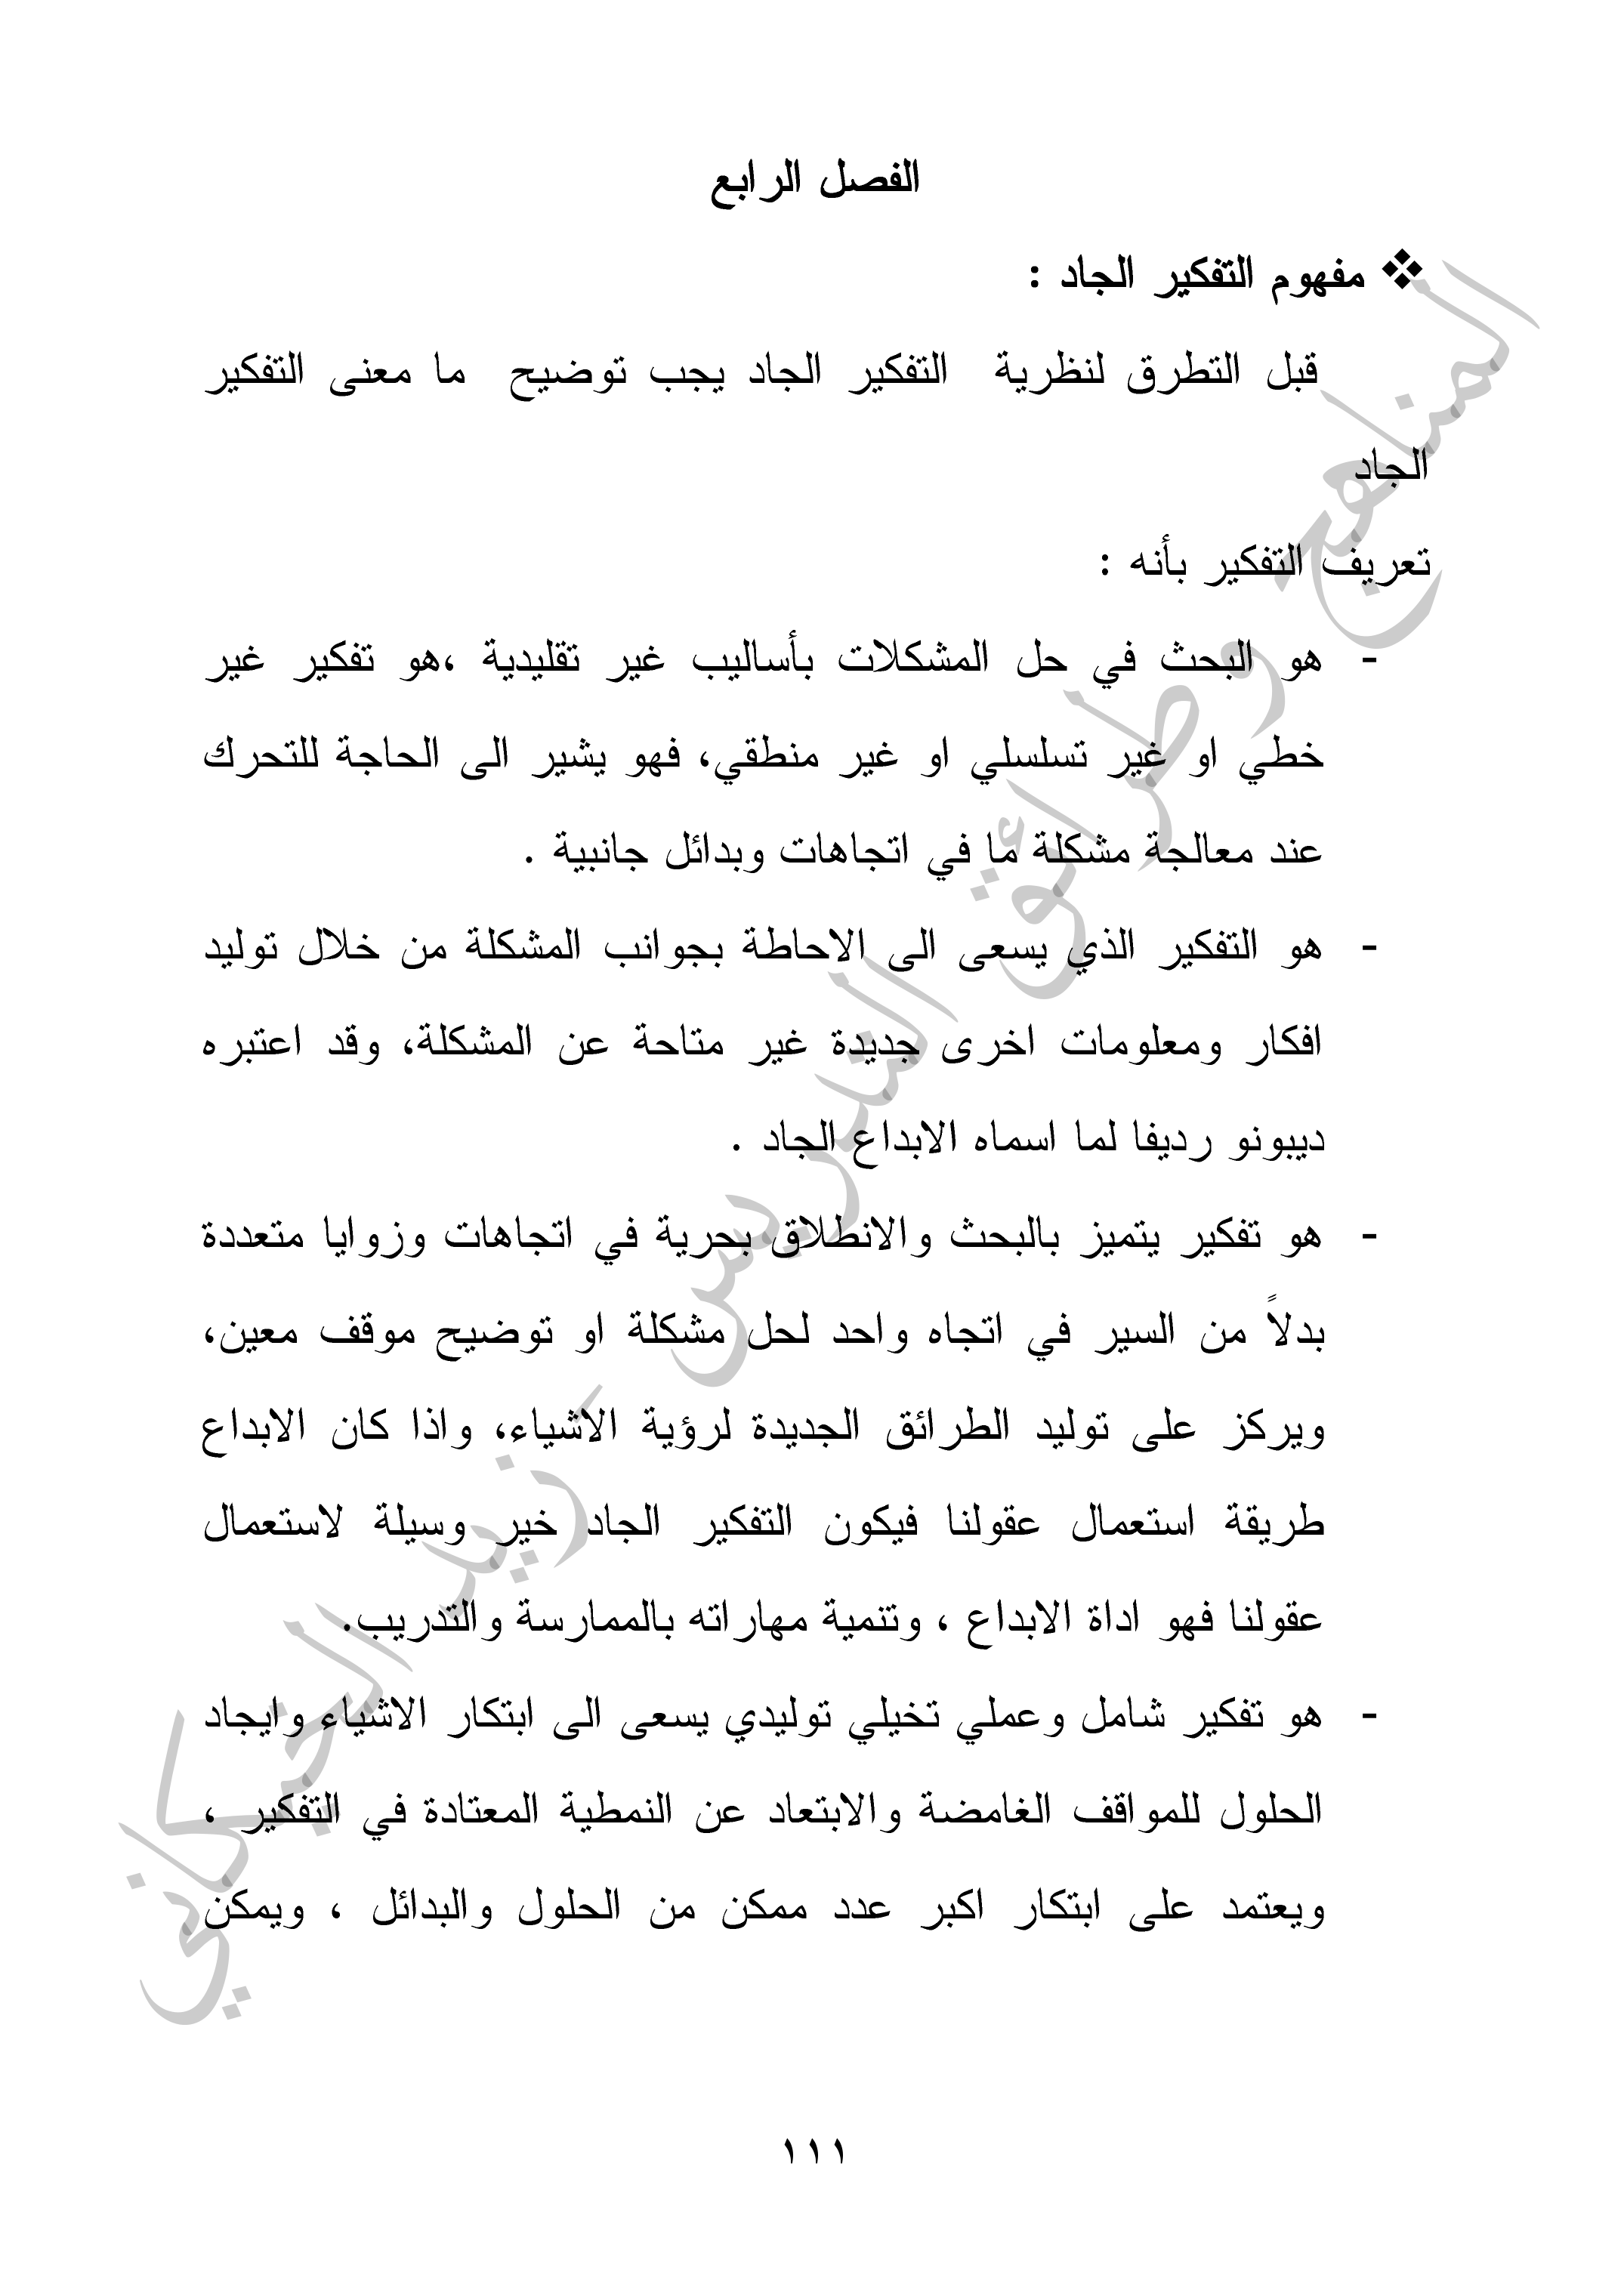 الفصل الرابع
❖ مفهوم التفكير الجاد :
قبل التطرق لنظرية التفكير الجاد يجب توضيح ما معنى التفكير
الجاد
تعريف التفكير بأنه :
- هو البحث في حل المشكلات بأساليب غير تقليدية ،هو تفكير غير
خطي او غير تسلسلي او غير منطقي، فهو يشير الى الحاجة للتحرك
عند معالجة مشكلة ما في اتجاهات وبدائل جانبية .
- هو التفكير الذي يسعى الى الاحاطة بجوانب المشكلة من خلال توليد
افكار ومعلومات اخرى جديدة غير متاحة عن المشكلة، وقد اعتبره
ديبونو رديفا لما اسماه الابداع الجاد .
- هو تفكير يتميز بالبحث والانطلاق بحرية في اتجاهات وزوايا متعددة
بدلاً من السير في اتجاه واحد لحل مشكلة او توضيح موقف معين،
ويركز على توليد الطرائق الجديدة لرؤية الاشياء، واذا كان الابداع
طريقة استعمال عقولنا فيكون التفكير الجاد خير وسيلة لاستعمال
عقولنا فهو اداة الابداع ، وتنمية مهاراته بالممارسة والتدريب.
- هو تفكير شامل وعملي تخيلي توليدي يسعى الى ابتكار الاشياء وايجاد
الحلول للمواقف الغامضة والابتعاد عن النمطية المعتادة في التفكير ،
ويعتمد على ابتكار اكبر عدد ممكن من الحلول والبدائل ، ويمكن
١١١
المناهج وطرائق التدريس - زيد الخيكاني